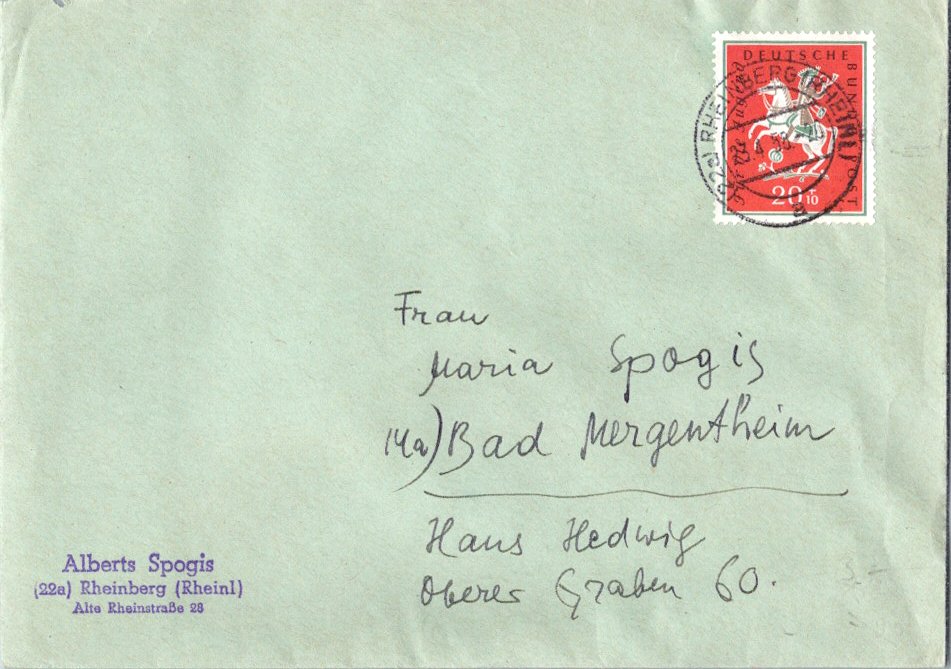 DEUTSCHE BUNDESPOST
Für die Jugend
20+10
(22a) RHEINBERG (RHEINL)
a
Frau
Maria Spogis
14a) Bad Mergentheim
Haus Hedwig
Oberer Graben 60.
Alberts Spogis
(22a) Rheinberg (Rheinl)
Alte Rheinstraße 28